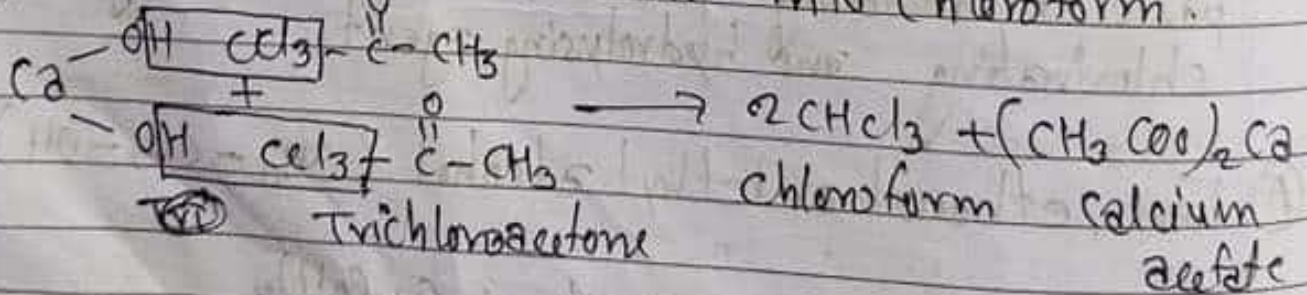 into Chloroform.
Ca - OH CCl3 - C - CH3
+
O
- OH CCl3 - C - CH3 → 2CHCl3 + (CH3COO)2Ca
Trichloroacetone Chloroform Calcium
acetate